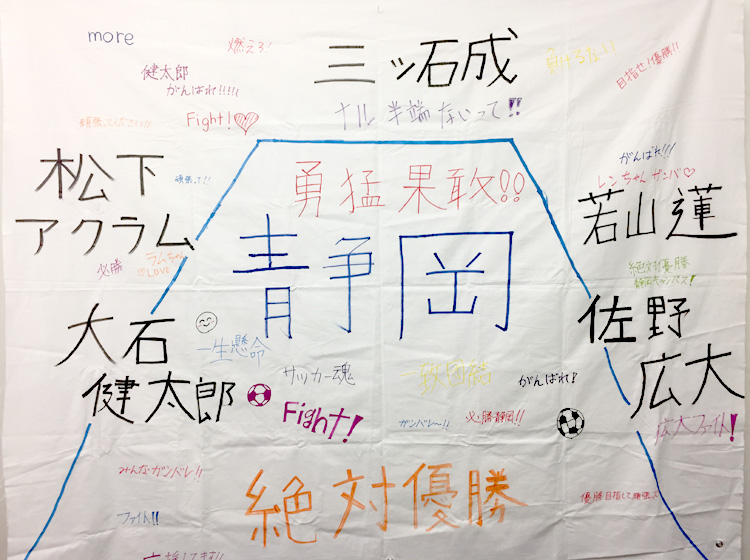 more
燃えろ!
三ッ石成
目指せ!優勝!!
健太郎
がんばれ!!!!!
Fight!
ナル 半端ないって!!
がんばれ!!!
レンちゃん ガンバ♡
勇猛果敢!!
松下
アクラム
頑張って!!
若山蓮
静岡
必勝
ラムちゃん
LOVE
絶対優勝
大石
健太郎
一生懸命
佐野
広大
サッカー魂
一致団結
がんばれ!
Fight!
ガンバレ~!!
必勝静岡!!
広大ファイト!
みんなガンバレ!!
絶対優勝
ファイト!!